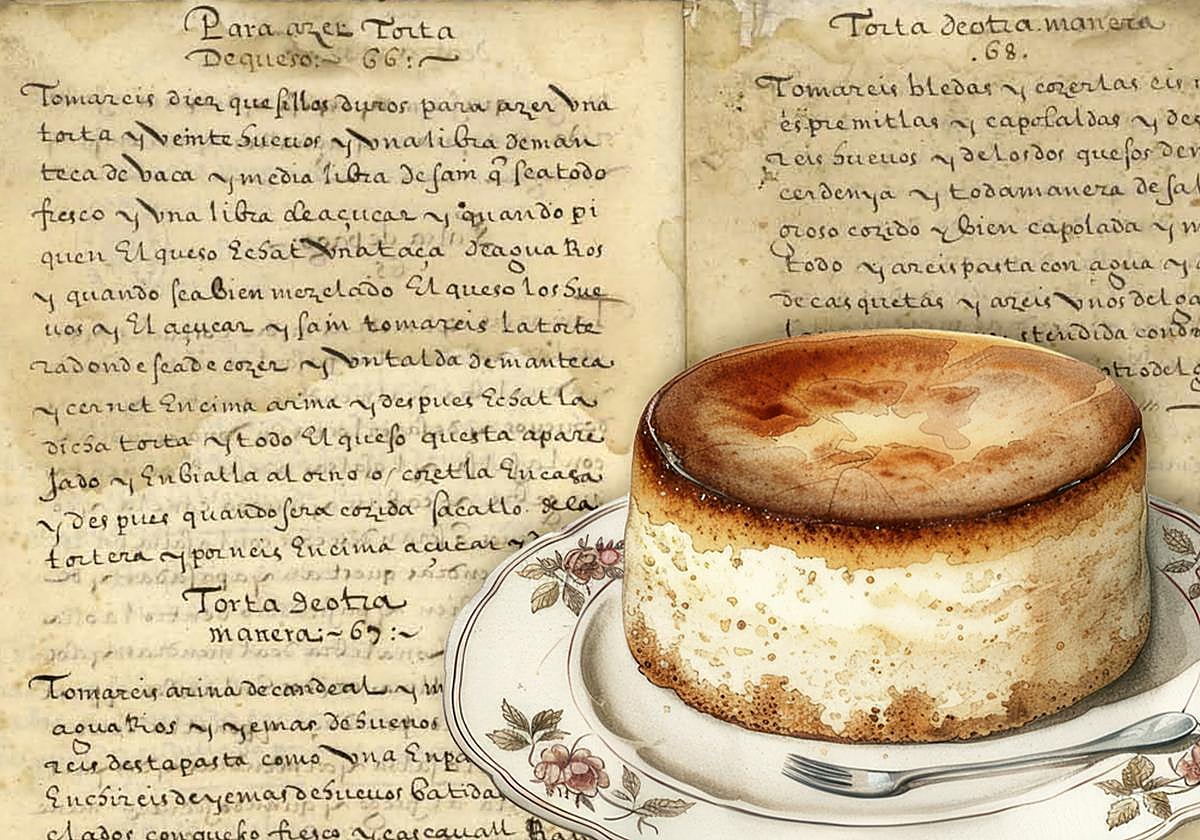 Para azer Torta
Dequeso:~ 66:~
Tomareis diez quesillos duros para azer Vna
torta y Veinte hueuos y Vna libra deman
teca de Vaca y media libra de sain q̃ sea todo
fresco y Vna libra de açucar y quando pi
quen El queso Echat Vna taça de agua Ros
y quando sea Bien mezclado El queso los hue
uos y El açucar y sain tomareis la torte
ra donde sea de cozer y Vntalda de manteca
y cernet Encima arina y despues Echat la
dicha torta y todo El queso questa apare
Jado y Enbialla al orno o / cozetla En casa
y des pues quando sera cozida sacallo de la
tortera y porneis Encima açucar y
Torta deotra
manera:~ 67:~
Tomareis arina de candeal y m
agua Rios y yemas de hueuos
reis desta pasta como Vna Enpa
Enchireis de yemas de hueuos batida
clados con queso fresco y cascauall
Torta deotra manera
.68.
Tomareis bledas y cozerlas eis
éspremitlas y capolaldas y des
reis hueuos y de los dos quesos de
cerdenya y toda manera de sal
oroso cozido y bien capolada y m
todo y areis pasta con agua y
de casquetas y azeis Vnos del ga
stendida cond
ntro del g